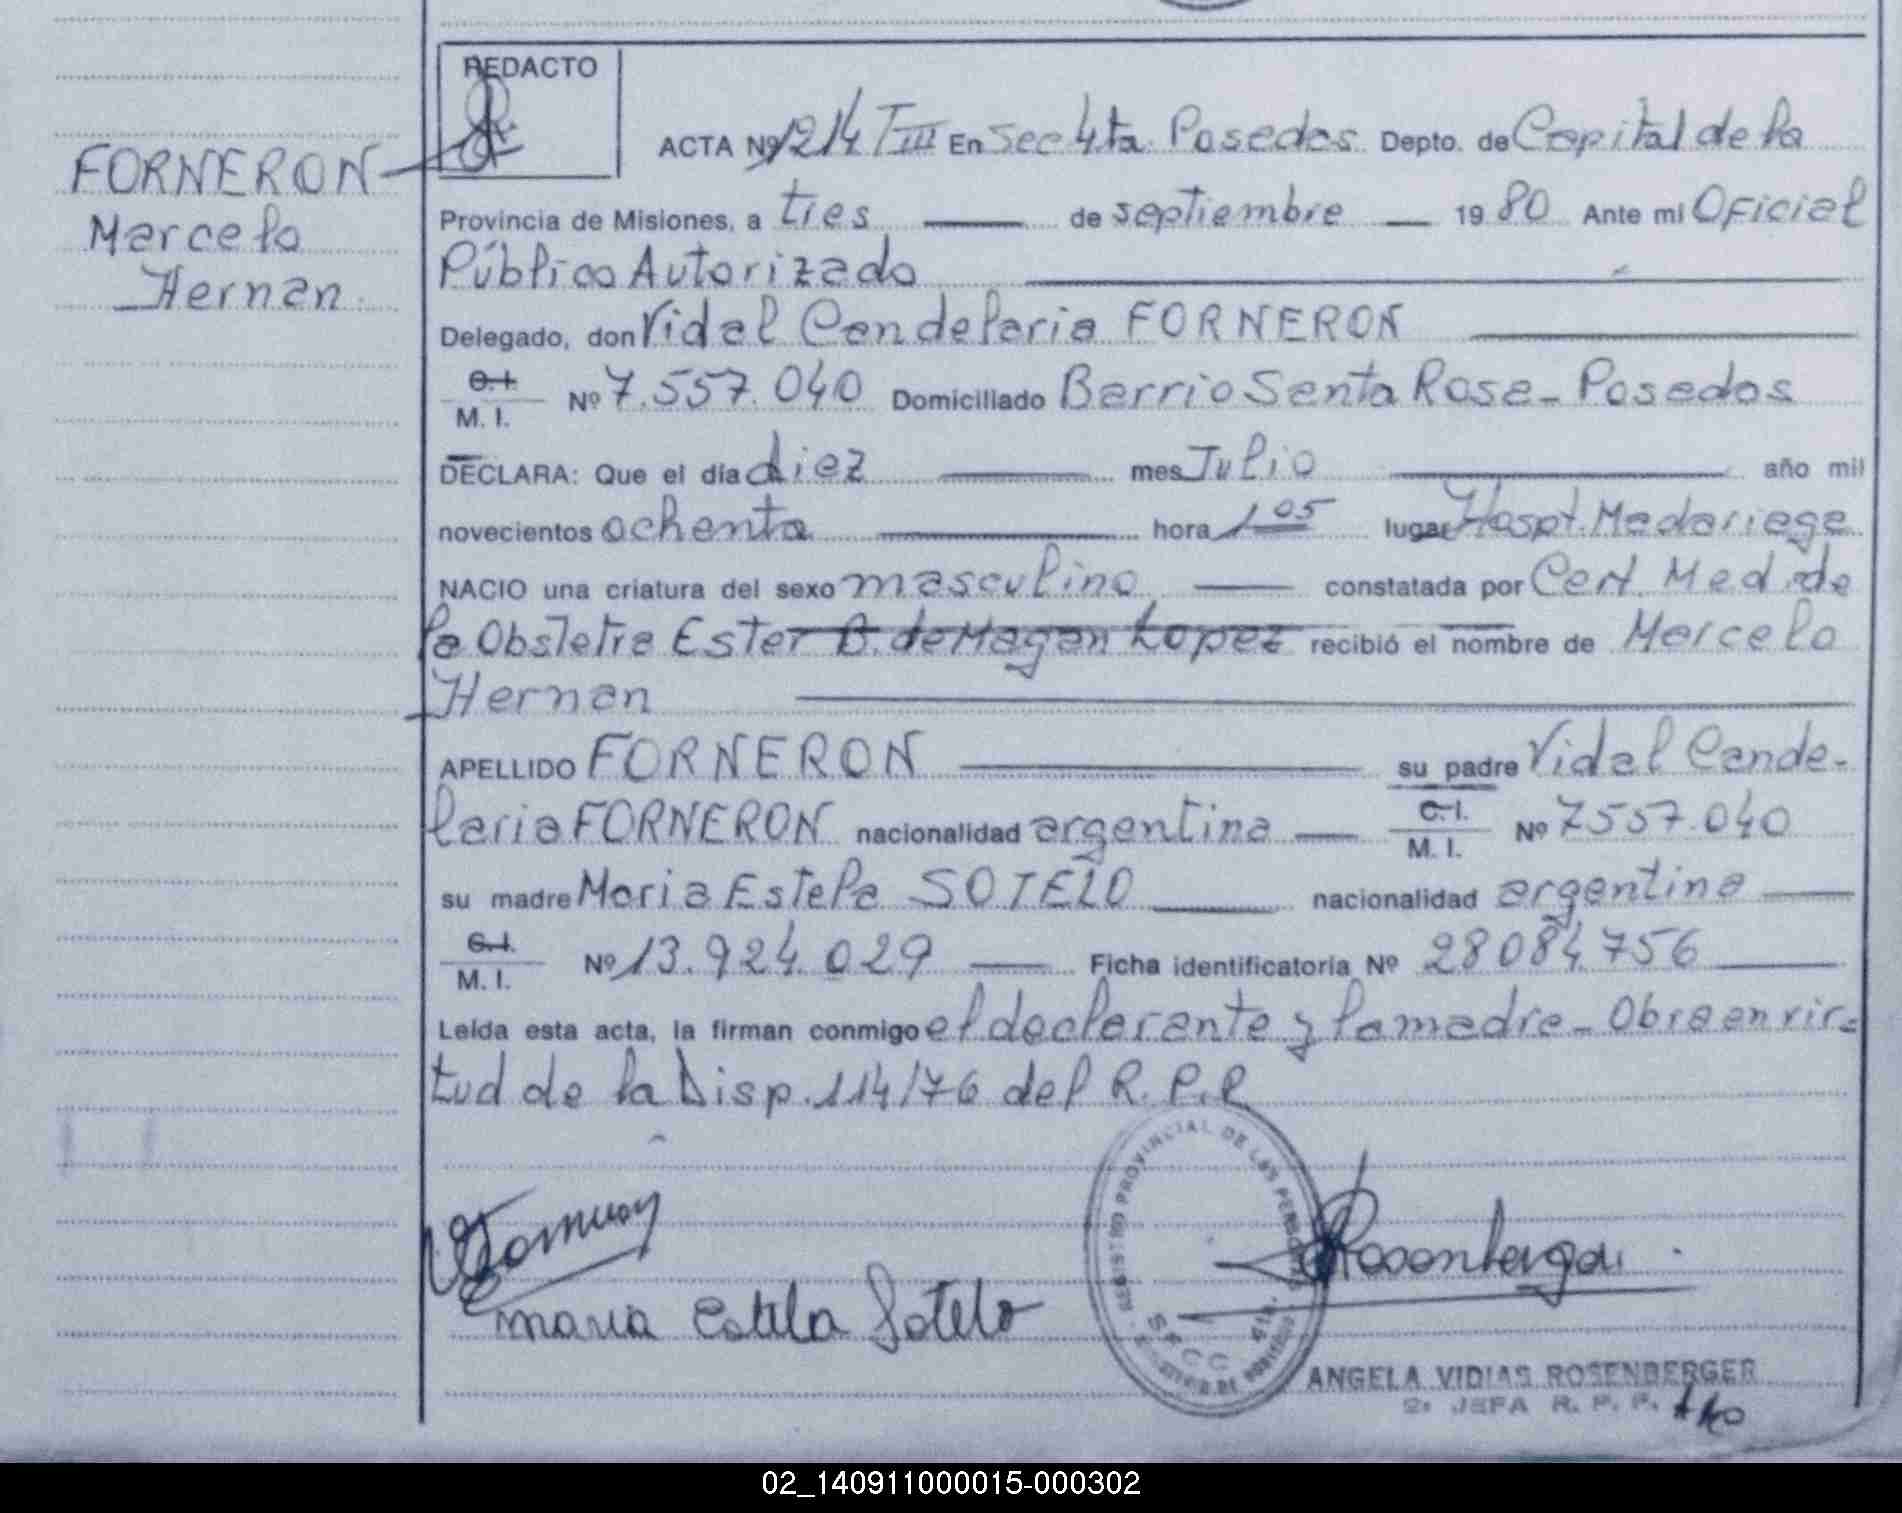 REDACTO
FORNERON
Marcelo
Hernan
ACTA Nº 1214 T III En Secc 4ta. Posadas Depto. de Capital de la
Provincia de Misiones, a tres de septiembre 19 80 Ante mi Oficial
Público Autorizado
Delegado, don Vidal Candelario FORNERON
C. I. M. I. Nº 7.557.040 Domiciliado Barrio Santa Rosa - Posadas
DECLARA: Que el día diez mes Julio año mil
novecientos ochenta hora 1 05 lugar Hospt. Madariaga
NACIO una criatura del sexo masculino constatada por Cert. Med. de
la Obstetra Ester B. de Magan Lopez recibió el nombre de Marcelo
Hernan
APELLIDO FORNERON su padre Vidal Cande-
lario FORNERON nacionalidad argentina C. I. M. I. Nº 7557.040
su madre Maria Estela SOTELO nacionalidad argentina
C. I. M. I. Nº 13.924.029 Ficha identificatoria Nº 28084756
Leída esta acta, la firman conmigo el declarante y la madre - Obra en vir-
tud de la Disp. 114/76 del R. P. P.
REGISTRO PROVINCIAL DE LAS PERSONAS
Maria Estela Sotelo
ANGELA VIDIAS ROSENBERGER
2ª JEFA R. P. P.
02_140911000015-000302